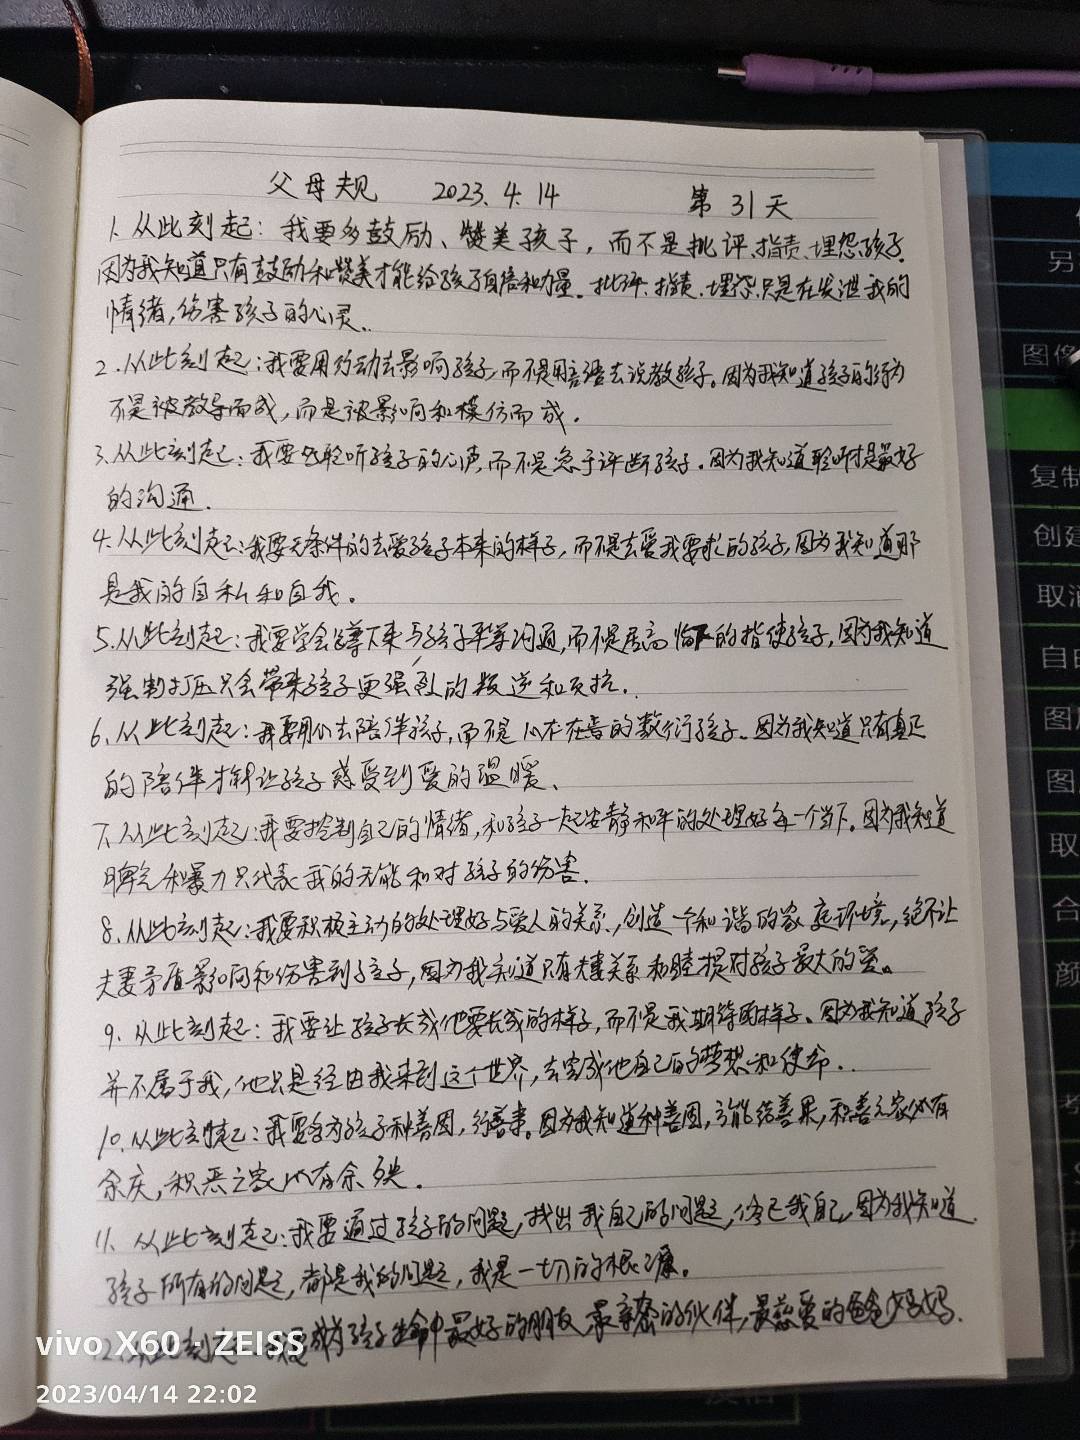 父母规 2023.4.14 第31天
1.从此刻起：我要多鼓励、赞美孩子，而不是批评、指责、埋怨孩子。
因为我知道只有鼓励和赞美才能给孩子自信和力量。批评、指责、埋怨只是在发泄我的
情绪，伤害孩子的心灵。
2.从此刻起：我要用行动去影响孩子，而不是用言语去说教孩子。因为我知道孩子的行为
不是被教导而成，而是被影响和模仿而成。
3.从此刻起：我要去聆听孩子的心声，而不是急于评断孩子。因为我知道聆听才是最好
的沟通。
4.从此刻起：我要无条件的去爱孩子本来的样子，而不是去爱我要求的孩子，因为我知道那
是我的自私和自我。
5.从此刻起：我要学会蹲下来与孩子平等沟通，而不是居高临下的指使孩子，因为我知道
强制打压只会带来孩子更强烈的叛逆和反抗。
6.从此刻起：我要用心去陪伴孩子，而不是心不在焉的敷衍孩子。因为我知道只有真正
的陪伴才能让孩子感受到爱的温暖。
7.从此刻起：我要控制自己的情绪，和孩子一起安静和平的处理好每一个当下。因为我知道
脾气和暴力只代表我的无能和对孩子的伤害。
8.从此刻起：我要积极主动的处理好与爱人的关系，创造一个和谐的家庭环境，绝不让
夫妻矛盾影响和伤害到孩子，因为我知道只有夫妻关系和睦才是对孩子最大的爱。
9.从此刻起：我要让孩子长成他要长成的样子，而不是我期待的样子。因为我知道孩子
并不属于我，他只是经由我来到这个世界，去完成他自己的梦想和使命。
10.从此刻起：我要会为孩子种善因，行善事。因为我知道种善因，方能结善果，积善之家必有
余庆，积恶之家必有余殃。
11.从此刻起：我要通过孩子的问题，找出我自己的问题，修正我自己，因为我知道
孩子所有的问题，都是我的问题，我是一切的根源。
12.从此刻起：我要成为孩子生命中最好的朋友，最亲密的伙伴，最慈爱的爸爸妈妈。
vivo X60 · ZEISS
2023/04/14 22:02
另
图像
复制
创建
取消
自由
图
图
取
合
颜